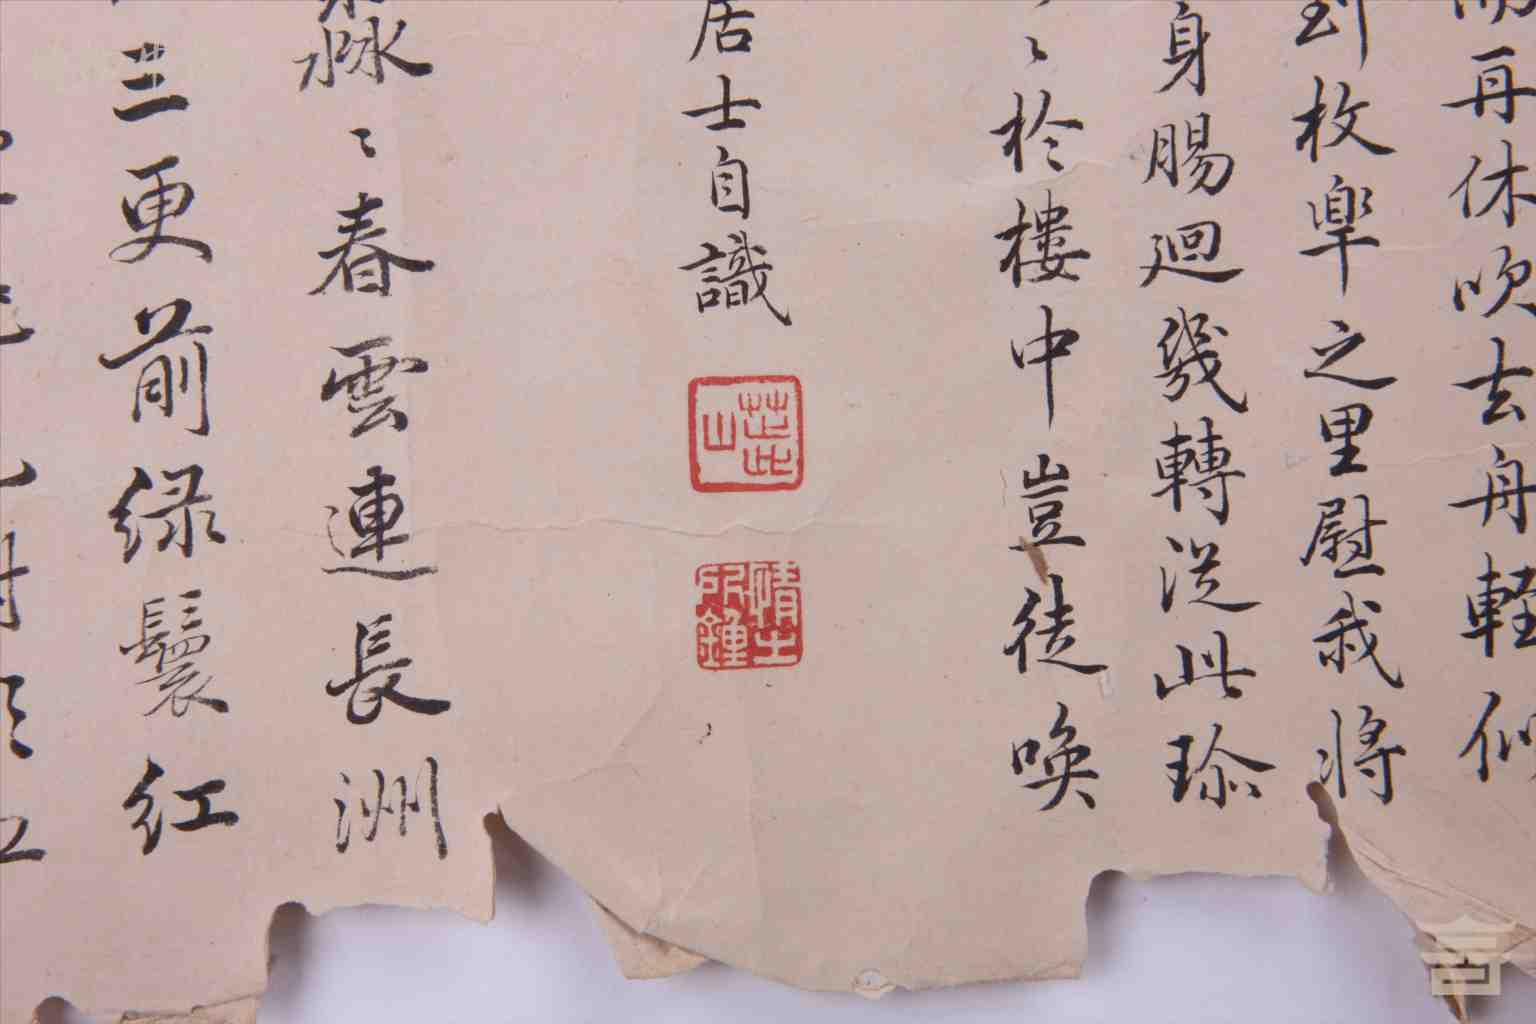 再休吹去舟輕似
到枚皐之里慰我將
身賜迴幾轉從此珍
〻於樓中豈徒喚
居士自識
茈山
情之所鍾
淼〻春雲連長洲
三更前緑鬟紅